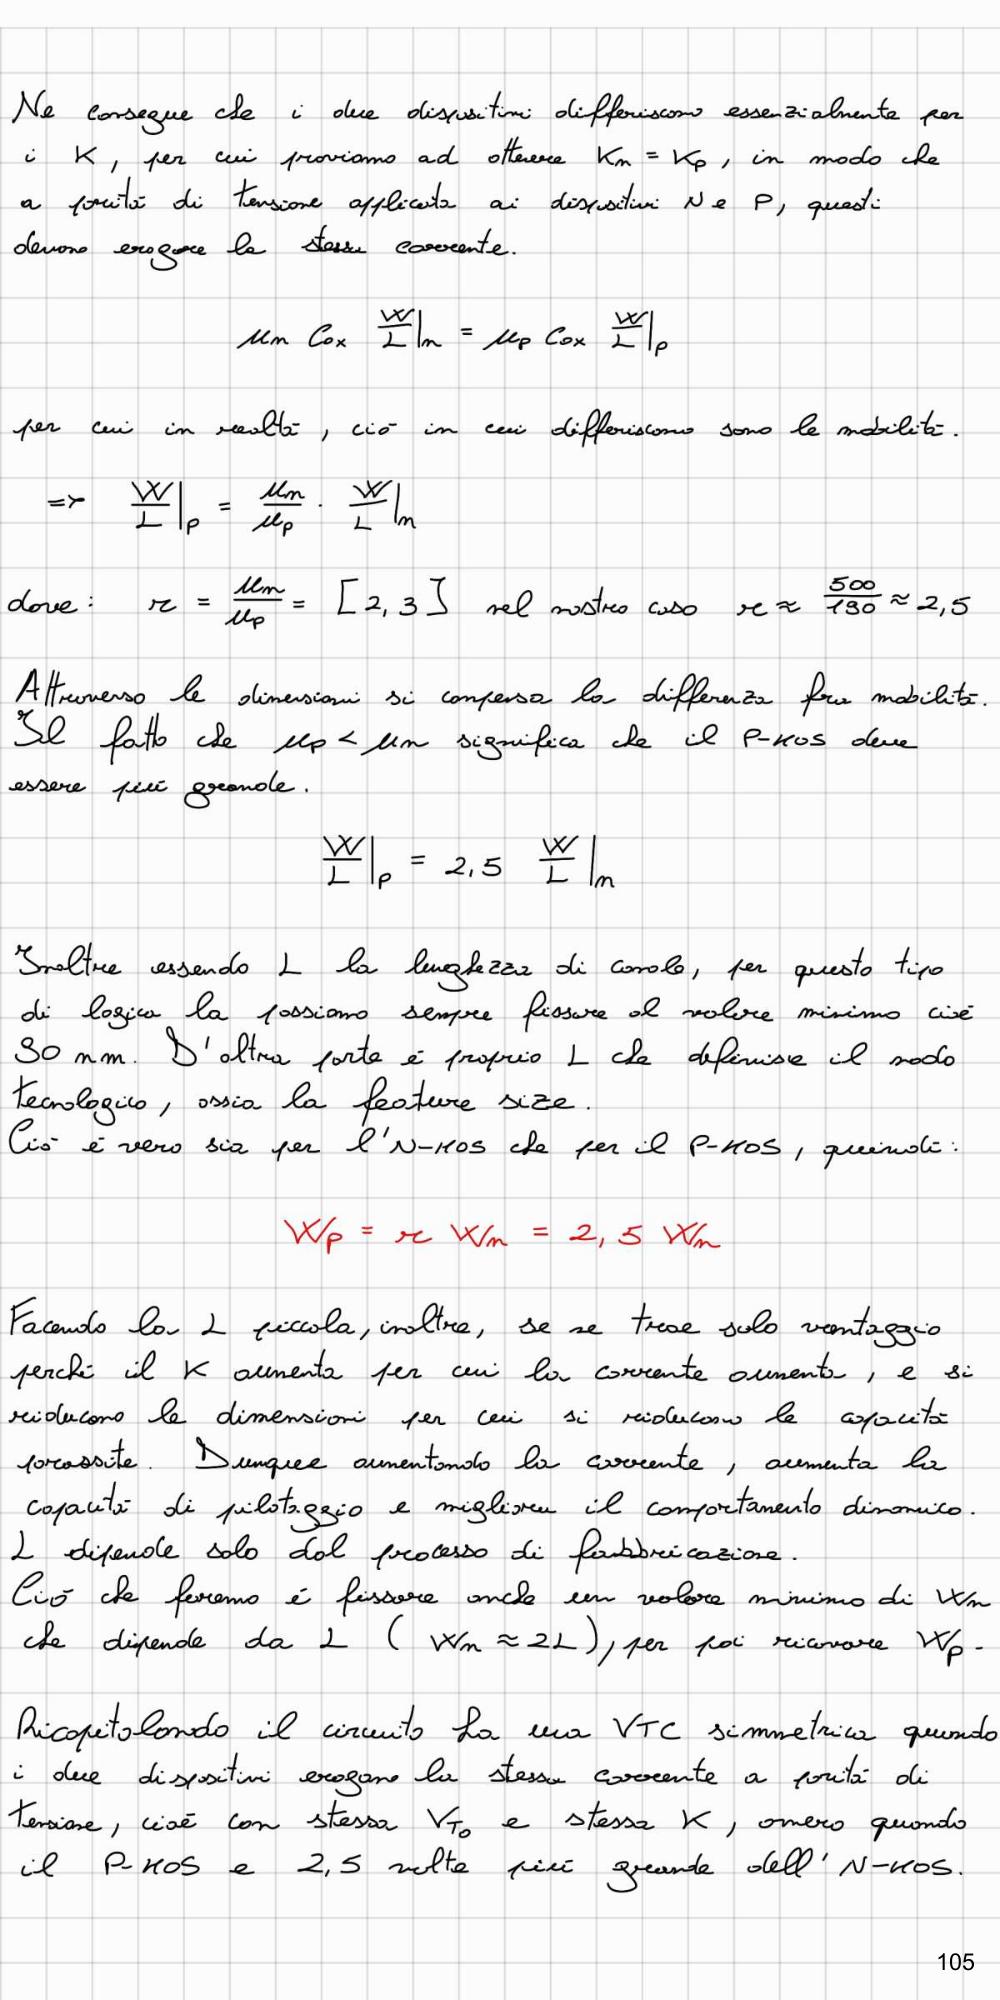 Ne consegue che i due dispositivi differiscono essenzialmente per
i K, per cui proviamo ad ottenere Kn = Kp, in modo che
a parità di tensione applicata ai dispositivi N e P, questi
devono erogare la stessa corrente.
μn Cox W/L|n = μp Cox W/L|p
per cui in realtà, ciò in cui differiscono sono le mobilità.
=> W/L|p = μn/μp · W/L|n
dove: r = μn/μp = [2,3] nel nostro caso r ≈ 500/190 ≈ 2,5
Attraverso le dimensioni si compensa la differenza fra mobilità.
Il fatto che μp < μn significa che il P-MOS deve
essere più grande.
W/L|p = 2,5 W/L|n
Inoltre essendo L la lunghezza di canale, per questo tipo
di logica la possiamo sempre fissare al valore minimo cioè
90 nm. D'altra parte è proprio L che definisce il nodo
tecnologico, ossia la feature size.
Ciò è vero sia per l'N-MOS che per il P-MOS, quindi:
Wp = r Wn = 2,5 Wn
Facendo la L piccola, inoltre, se ne trae solo vantaggio
perché il K aumenta per cui la corrente aumenta, e si
riducono le dimensioni per cui si riducono le capacità
parassite. Dunque aumentando la corrente, aumenta la
capacità di pilotaggio e migliora il comportamento dinamico.
L dipende solo dal processo di fabbricazione.
Ciò che faremo è fissare anche un valore minimo di Wn
che dipende da L (Wn ≈ 2L), per poi ricavare Wp.
Ricapitolando il circuito ha una VTC simmetrica quando
i due dispositivi erogano la stessa corrente a parità di
tensione, cioè con stessa VT0 e stessa K, ovvero quando
il P-MOS e 2,5 volte più grande dell'N-MOS.
105